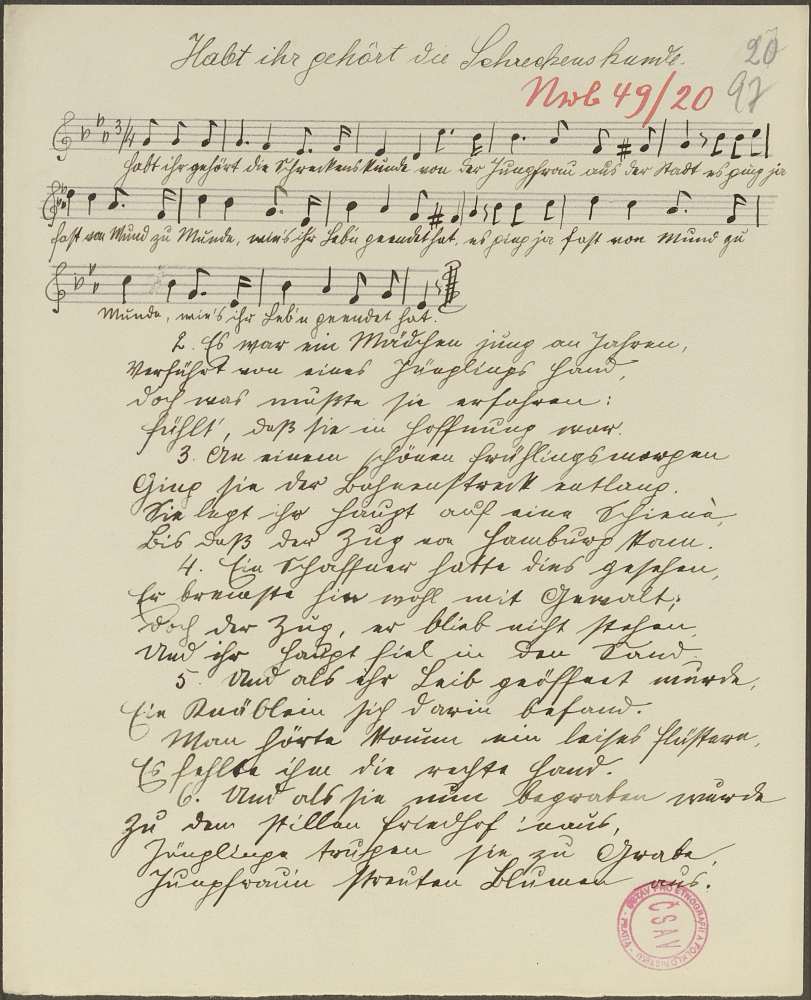 Habt ihr gehört die Schreckenskunde.
20
97
Nrb 49/20
3/4
Habt ihr gehört die Schreckenskunde von der Jungfrau aus der Stadt es ging ja
fast von Mund zu Munde, wie's ihr Leb'n geendet hat, es ging ja fast von Mund zu
Munde, wie's ihr Leb'n geendet hat.
2. Es war ein Mädchen jung an Jahren,
Verführt von eines Jünglings Hand,
Doch was mußte sie erfahren:
Fühlt', daß sie in Hoffnung war.
3. An einem schönen Frühlingsmorgen
Ging sie der Bahnenstreck entlang.
Sie legt ihr Haupt auf eine Schiene,
Bis daß der Zug von Hamburg kam.
4. Ein Schaffner hatte dies gesehen,
Er bremste hin wohl mit Gewalt;
Doch der Zug, er blieb nicht stehen,
Und ihr Haupt fiel in den Sand.
5. Und als ihr Leib geöffnet wurde,
Ein Knäblein sich darin befand.
Man hörte kaum ein leises Flüstern,
Es fehlte ihm die rechte Hand.
6. Und als sie nun begraben wurde
Zu dem stillen Friedhof 'naus,
Jünglinge trugen sie zu Grabe,
Jungfrau'n streuten Blumen aus.
ÚSTAV PRO ETNOGRAFII A FOLKLORISTIKU - PRAHA -
ČSAV